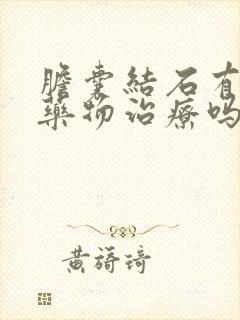 膽囊結石有
藥物治療嗎
黃簃琦